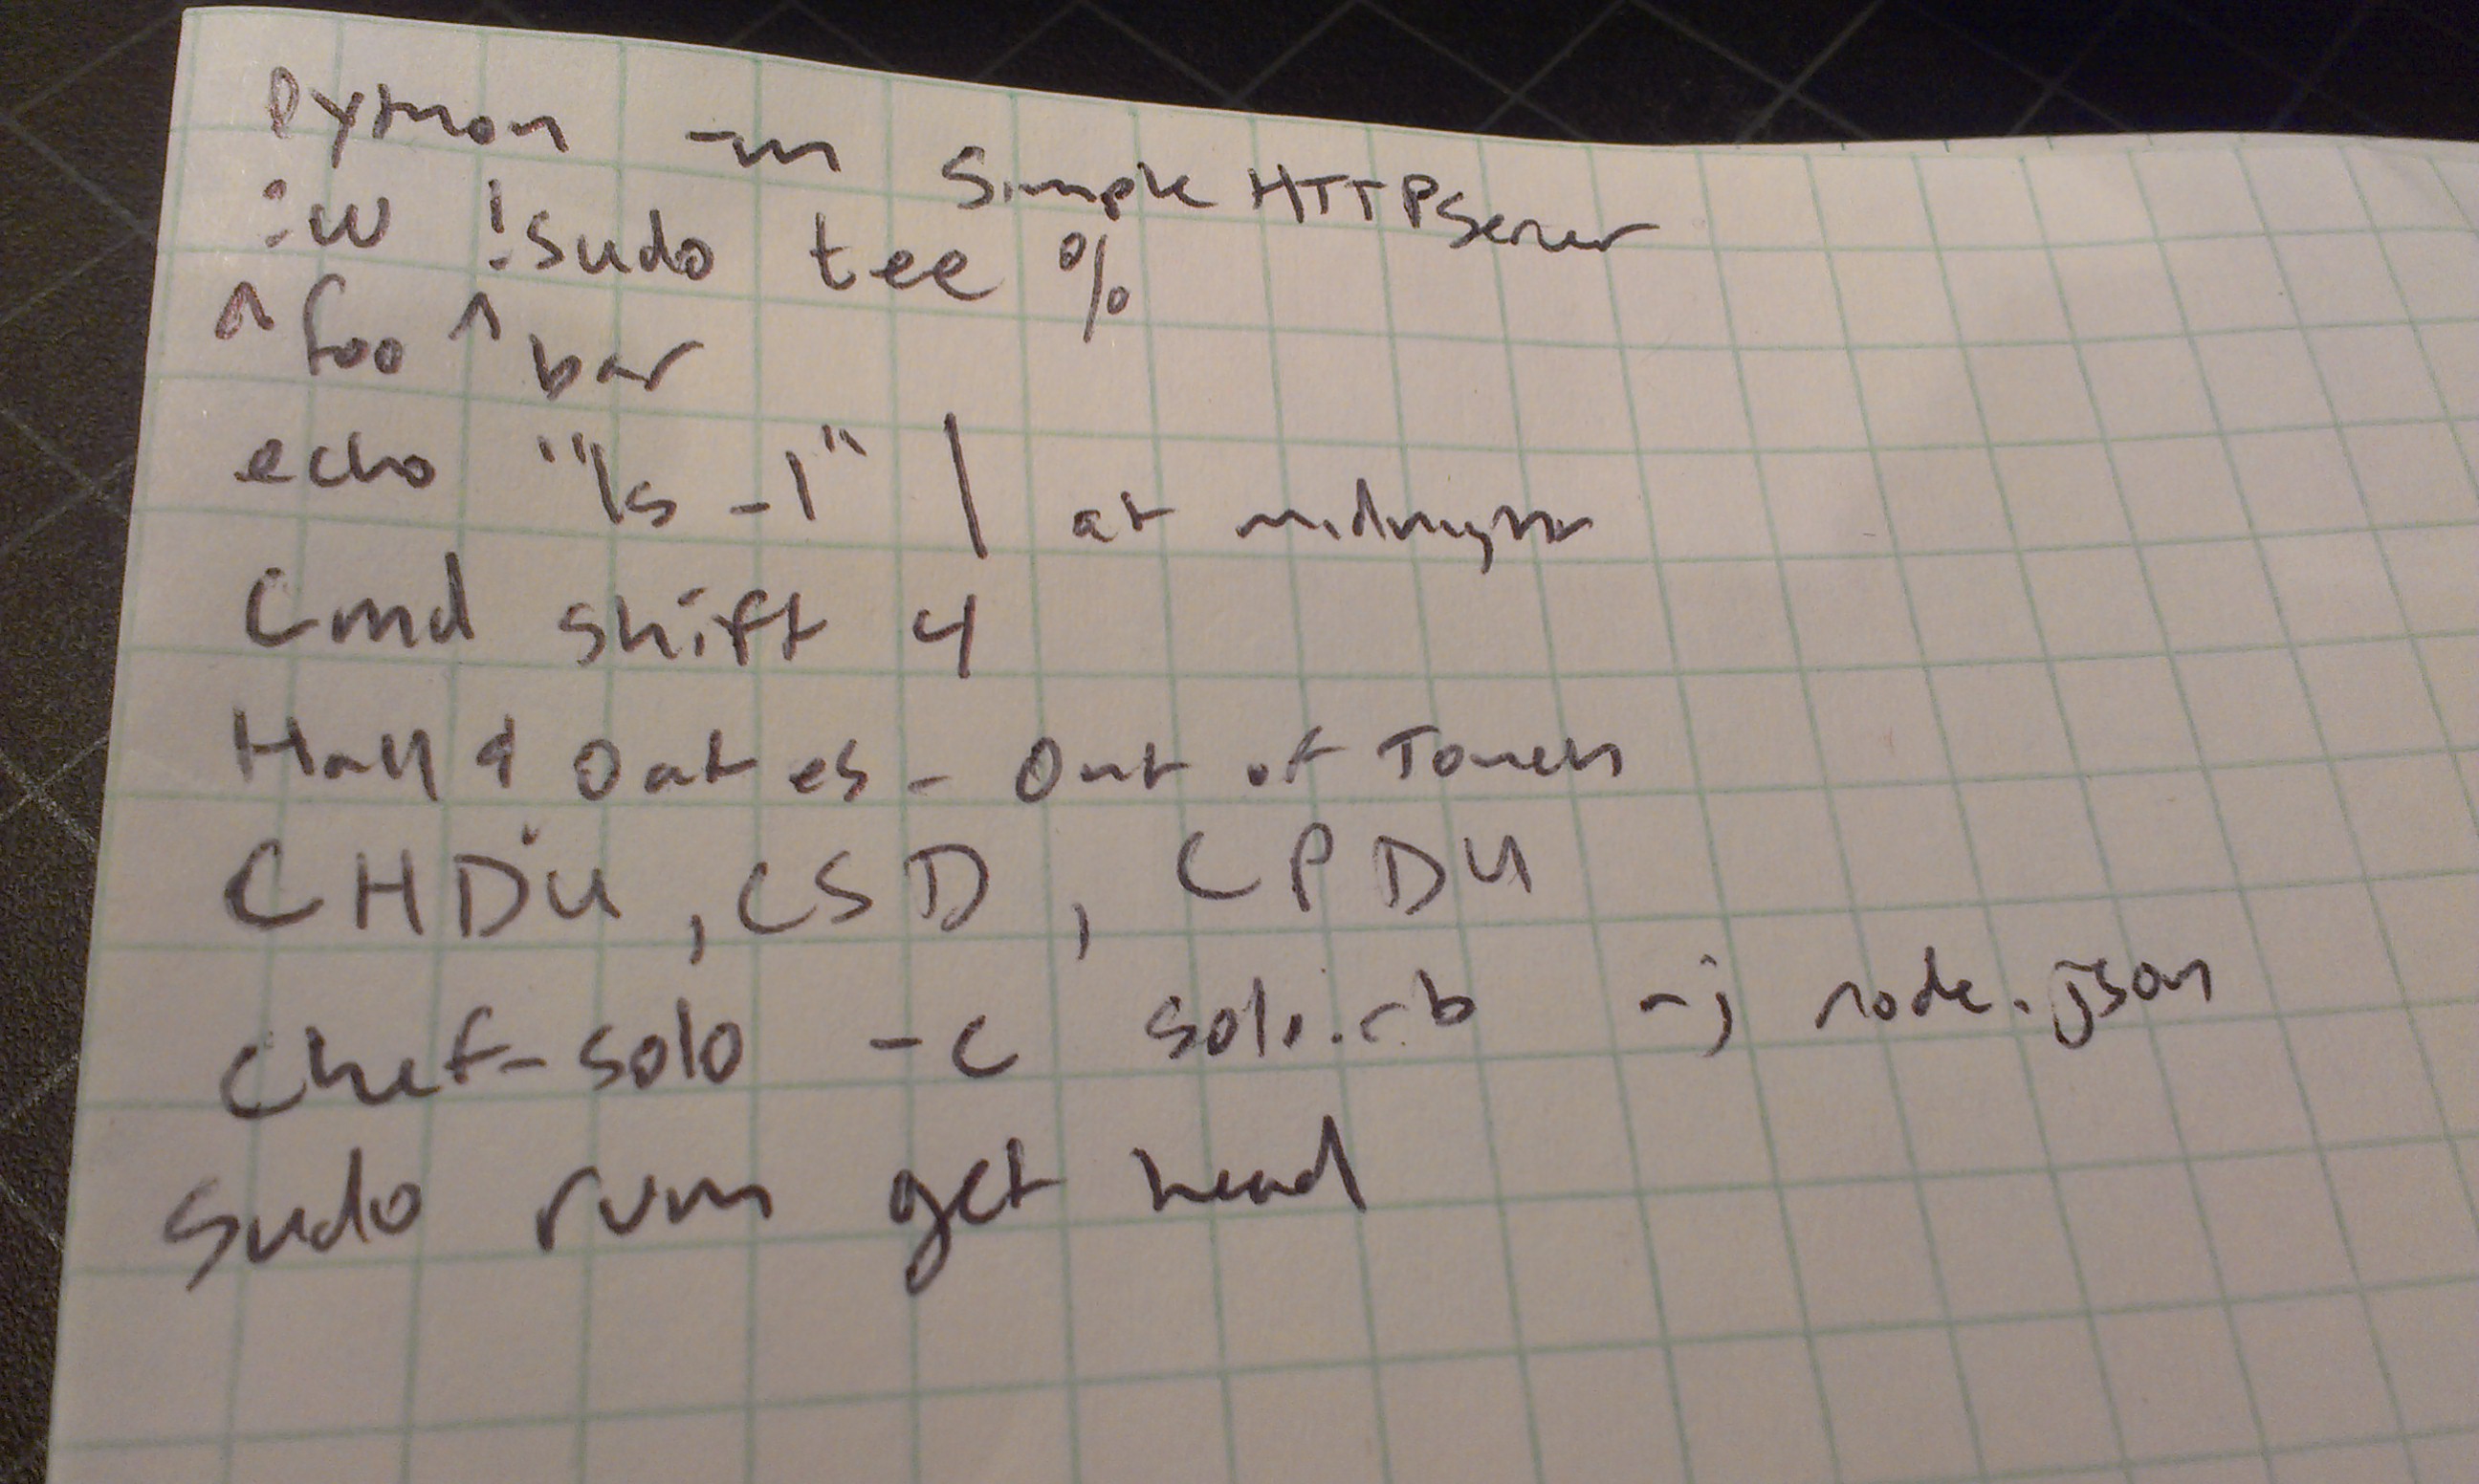 Python -m SimpleHTTPServer
:w !sudo tee %
^foo^bar
echo "ls -l" | at midnight
Cmd shift 4
Hall & Oates - Out of Touch
CHDU, CSD, CPDU
chef-solo -c solo.rb -j node.json
sudo rvm get head